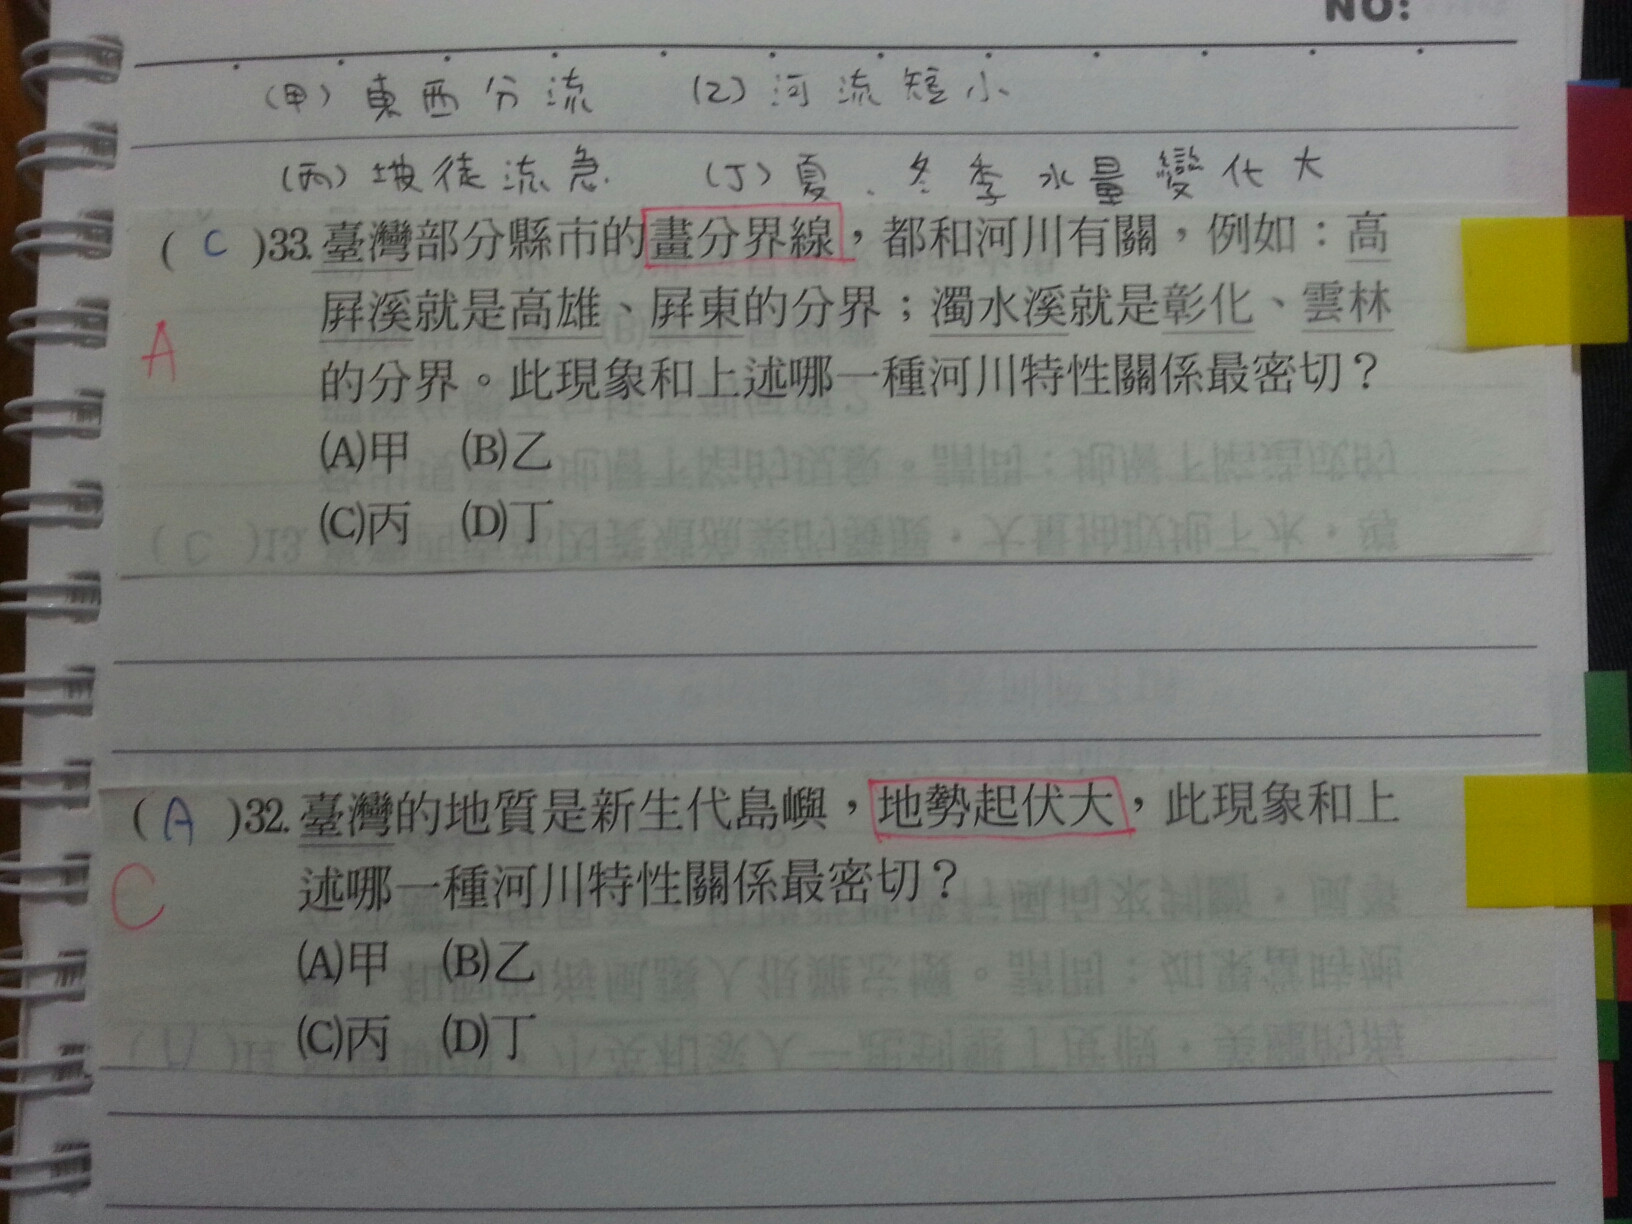 NO:
(甲)東西分流 (乙)河流短小
(丙)坡徒流急 (丁)夏、冬季水量變化大
( C )33.臺灣部分縣市的畫分界線，都和河川有關，例如：高
屛溪就是高雄、屛東的分界；濁水溪就是彰化、雲林
A
的分界。此現象和上述哪一種河川特性關係最密切？
(A)甲 (B)乙
(C)丙 (D)丁
( A )32.臺灣的地質是新生代島嶼，地勢起伏大，此現象和上
C
述哪一種河川特性關係最密切？
(A)甲 (B)乙
(C)丙 (D)丁